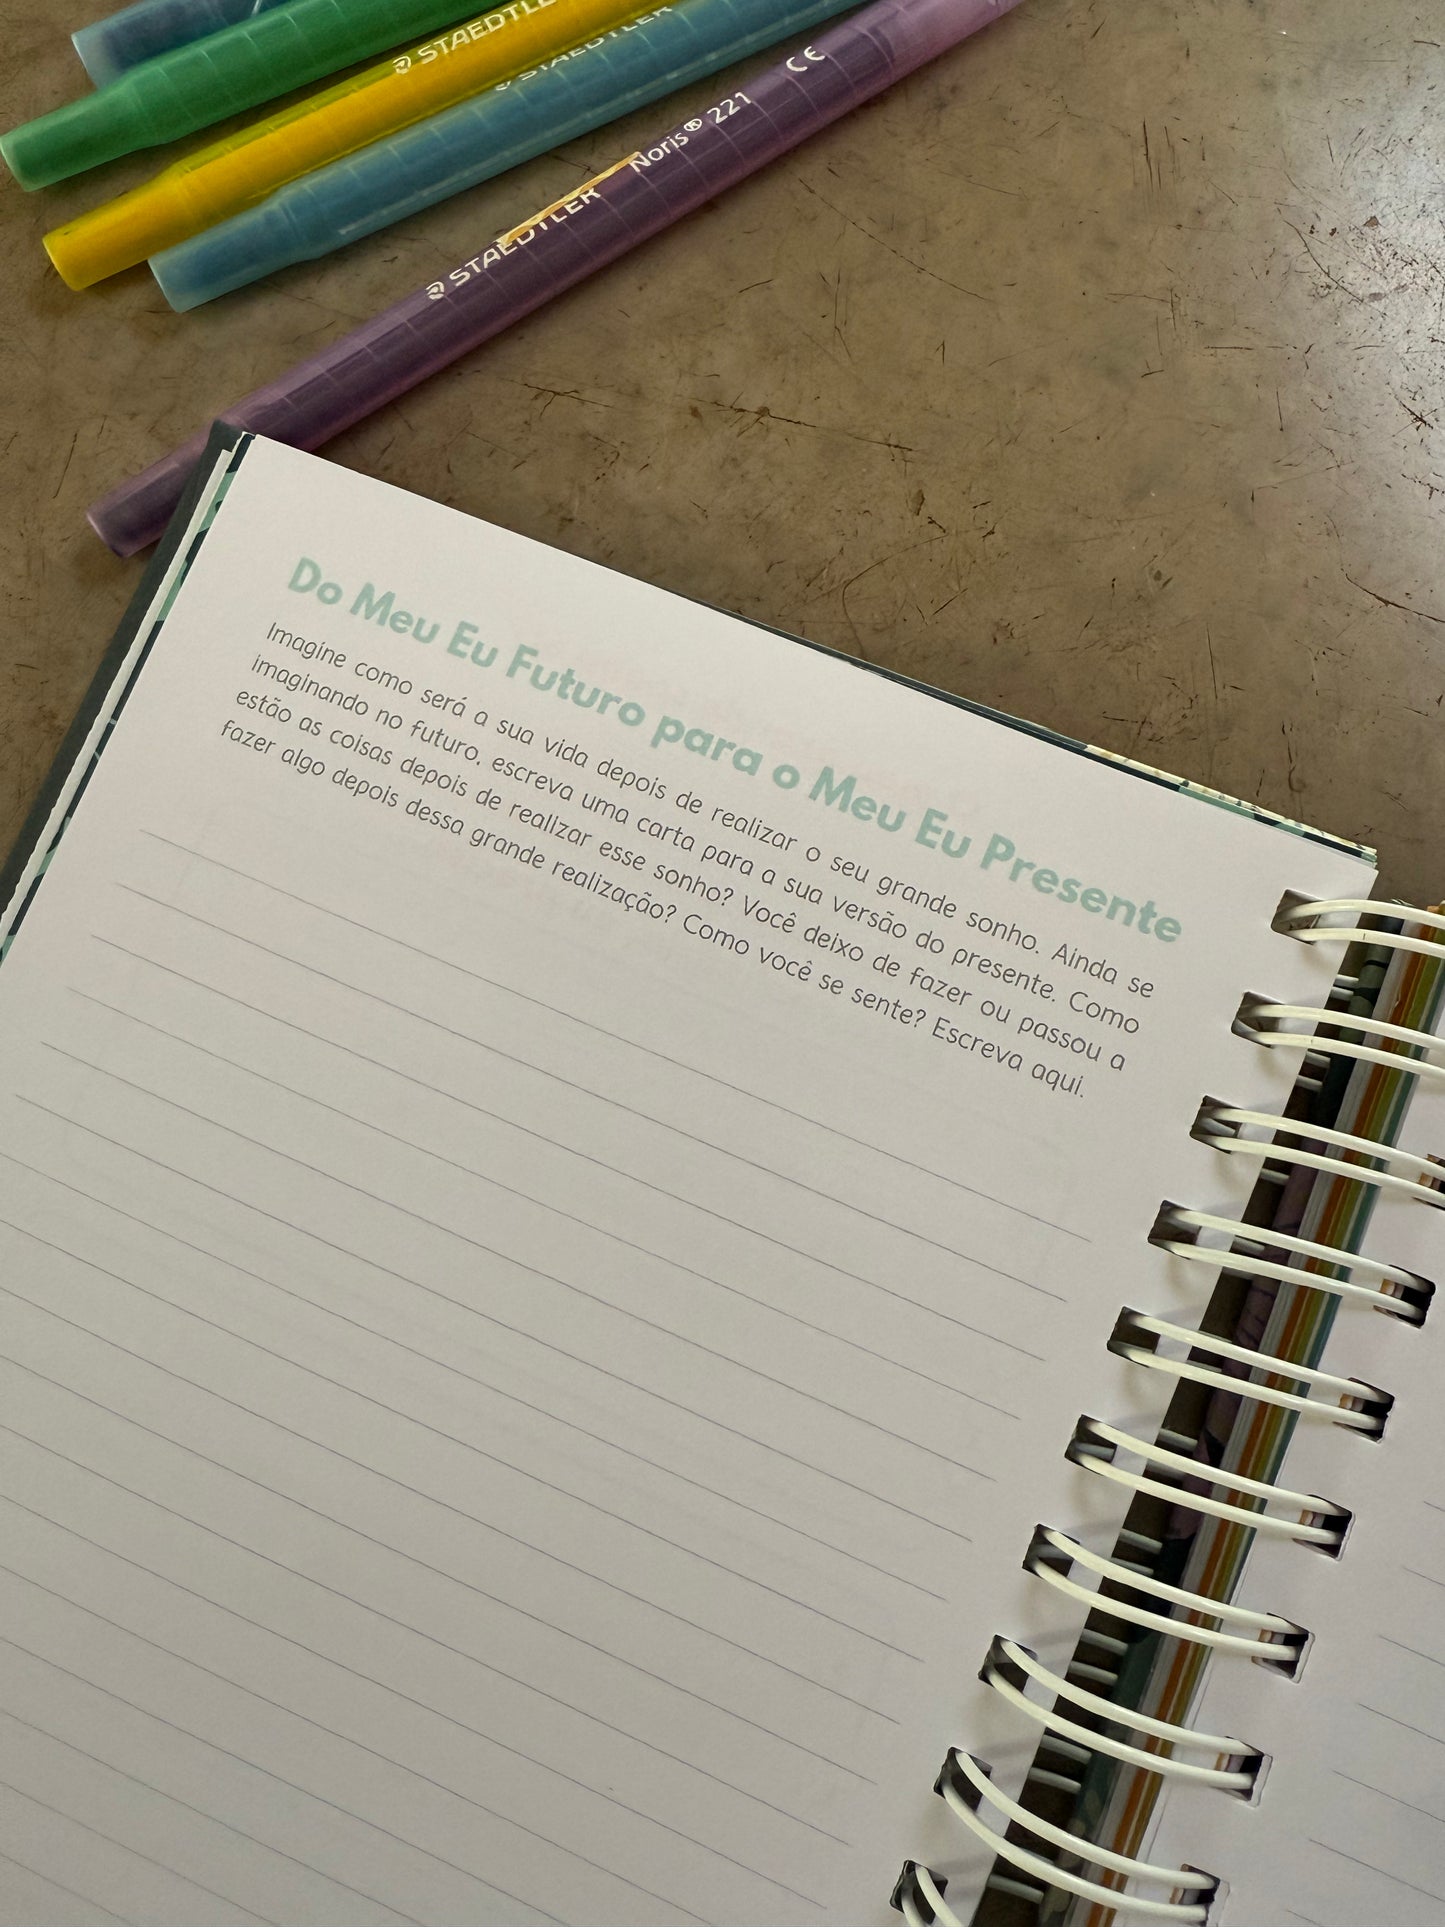 STAEDTLER
STAEDTLER
STAEDTLER Noris® 221 CE
Do Meu Eu Futuro para o Meu Eu Presente
Imagine como será a sua vida depois de realizar o seu grande sonho. Ainda se
imaginando no futuro, escreva uma carta para a sua versão do presente. Como
estão as coisas depois de realizar esse sonho? Você deixo de fazer ou passou a
fazer algo depois dessa grande realização? Como você se sente? Escreva aqui.